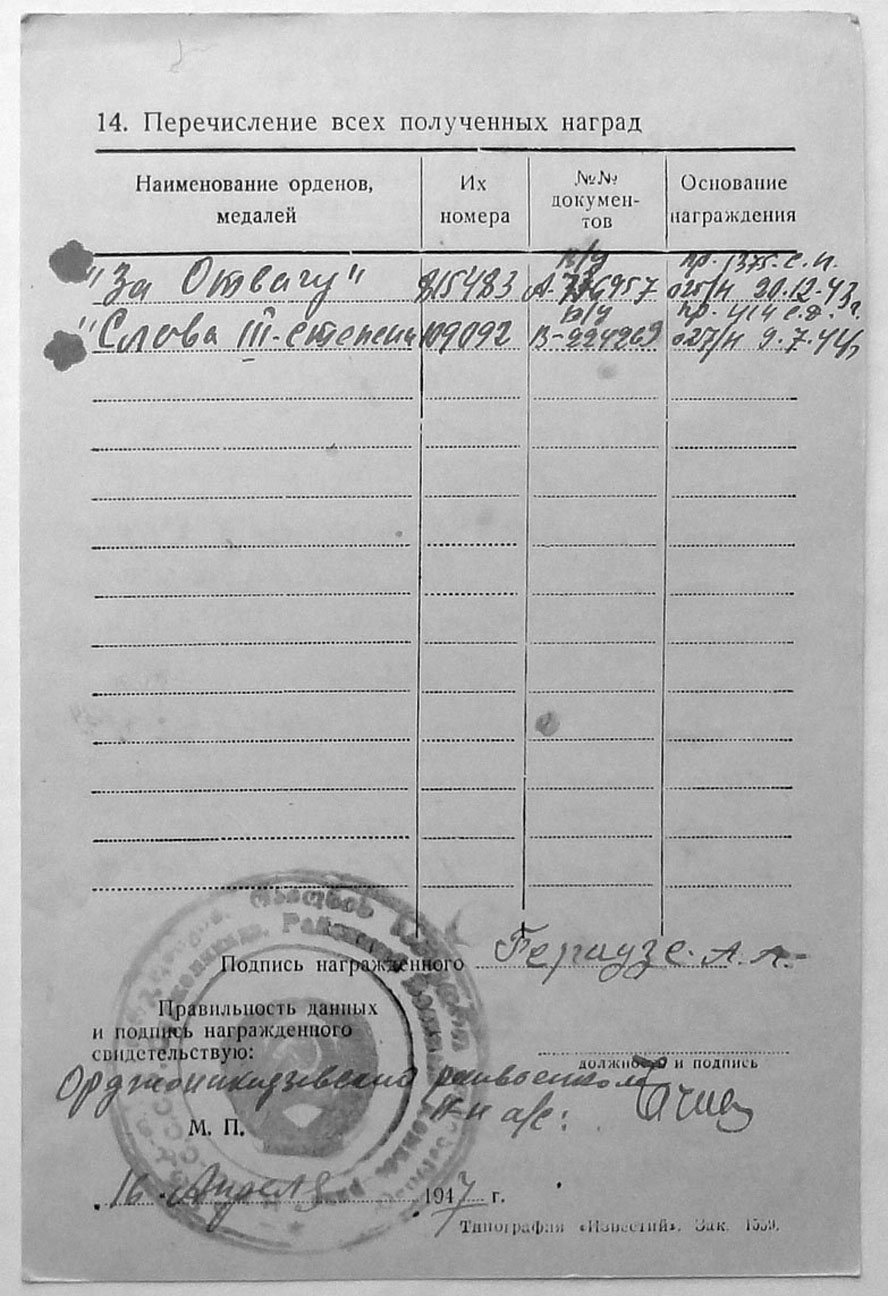 14. Перечисление всех полученных наград
Наименование орденов, медалей
Их номера
№№ документов
Основание награждения
"За Отвагу" 815483 в/у А-776957 пр. 1375 с.п. 025/н 20.12.43г.
"Слова III-степени 109092 в/у В-224269 пр. 414 с.д. 027/н 9.7.44г
Подпись награжденного Гергаузе. А. А.-
Правильность данных
и подпись награжденного
свидетельствую:
должность и подпись
Орджоникидзевский райвоенком
М. П.
п-к а/с:
16 Апреля 1947 г.
Типография «Известий». Зак. 1559.